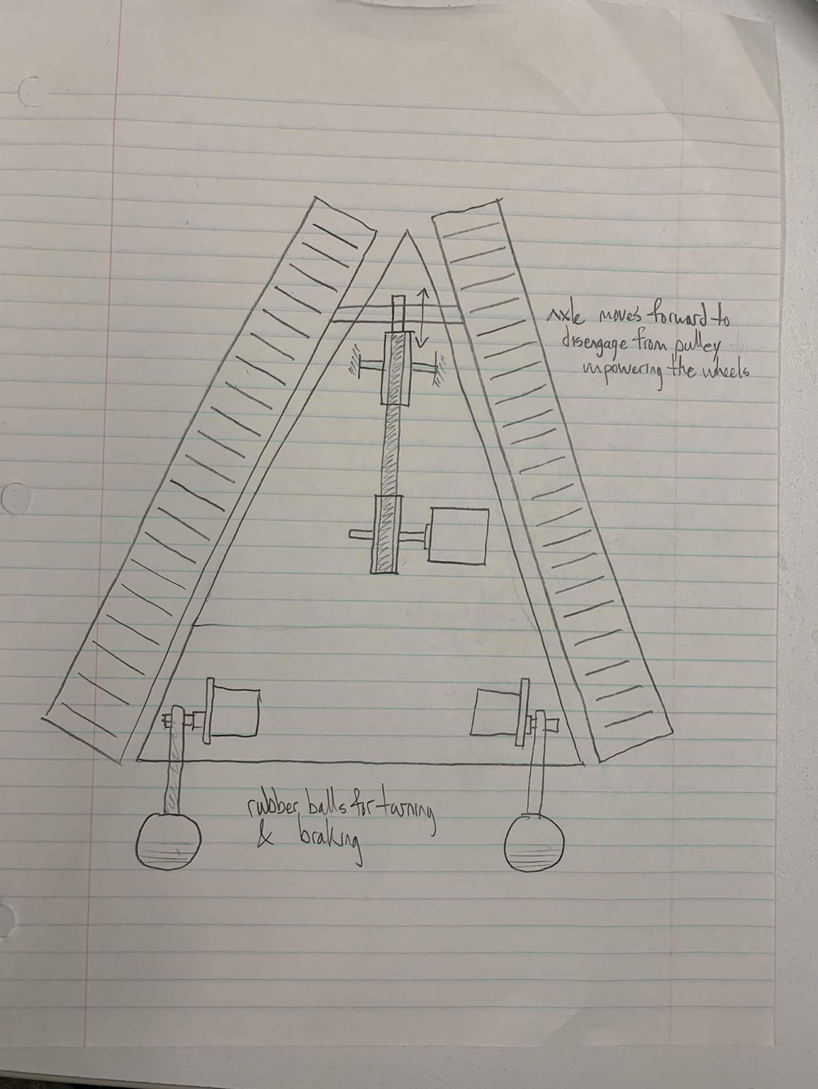 Axle moves forward to
disengage from pulley
unpowering the wheels
rubber balls for turning
& braking